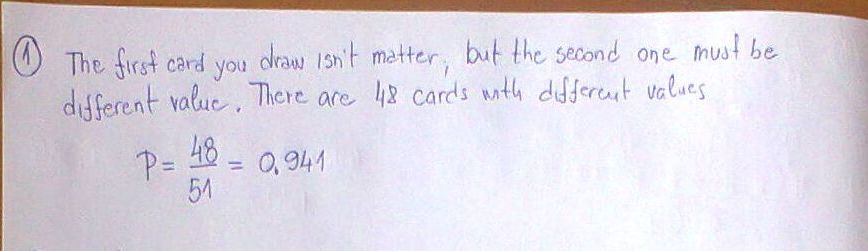 ① The first card you draw isn't matter, but the second one must be
different value. There are 48 cards with different values
P = 48/51 = 0.941